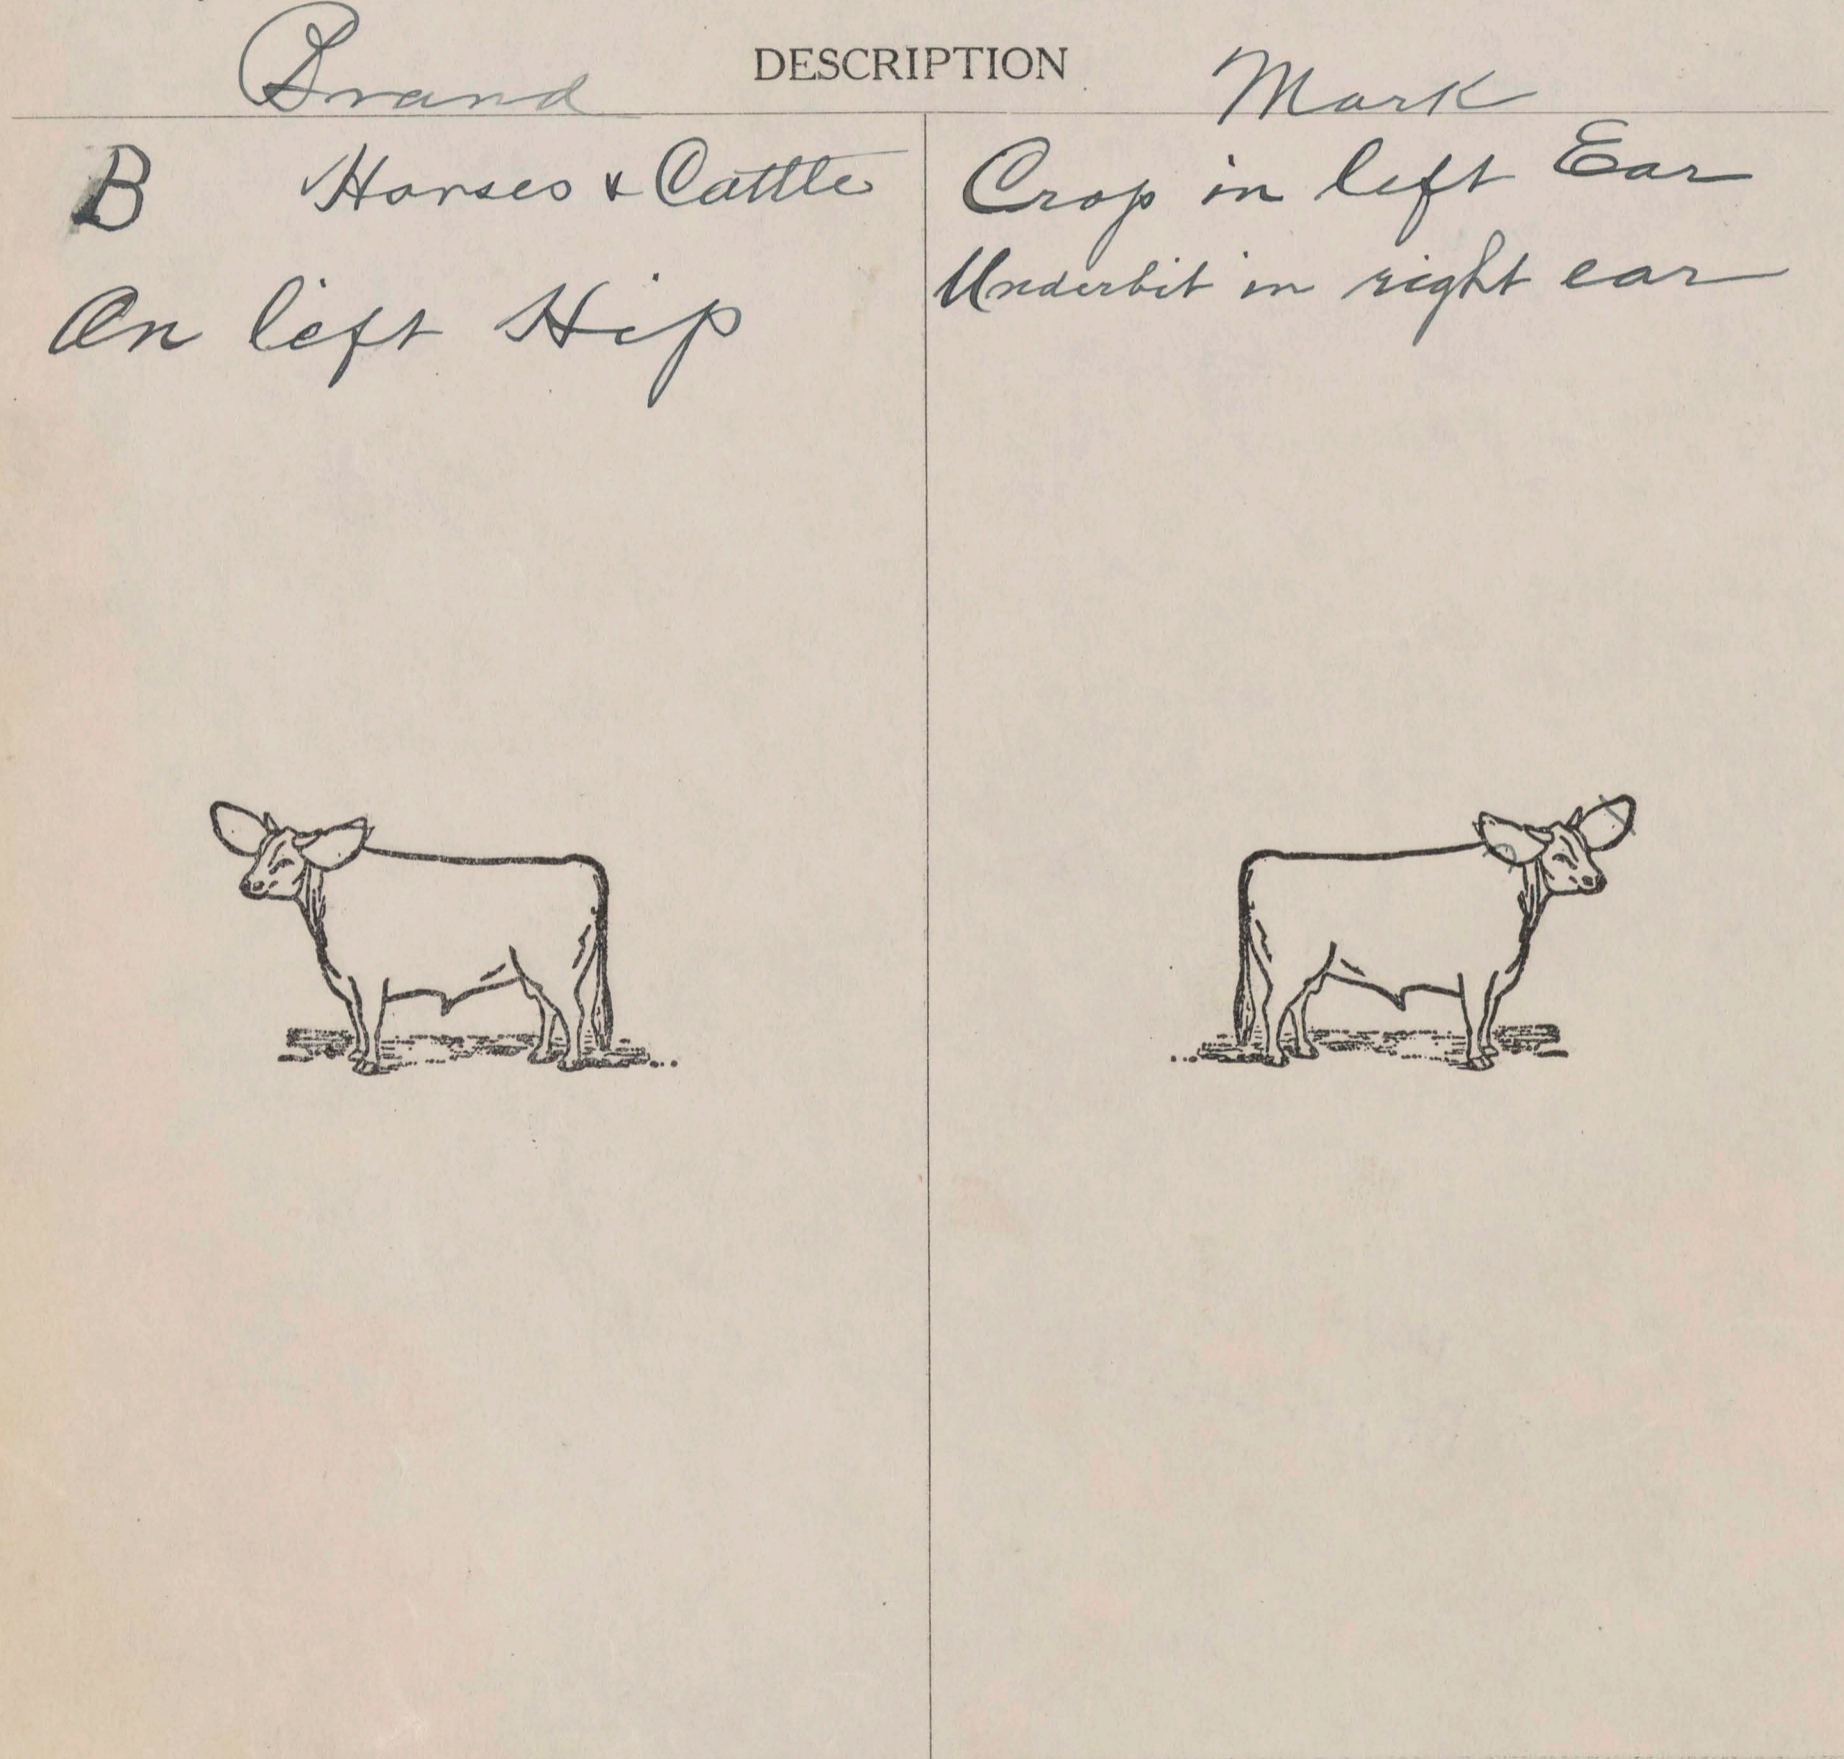 Brand DESCRIPTION Mark
B Horses & Cattle
On left Hip
Crop in left Ear
Underbit in right ear